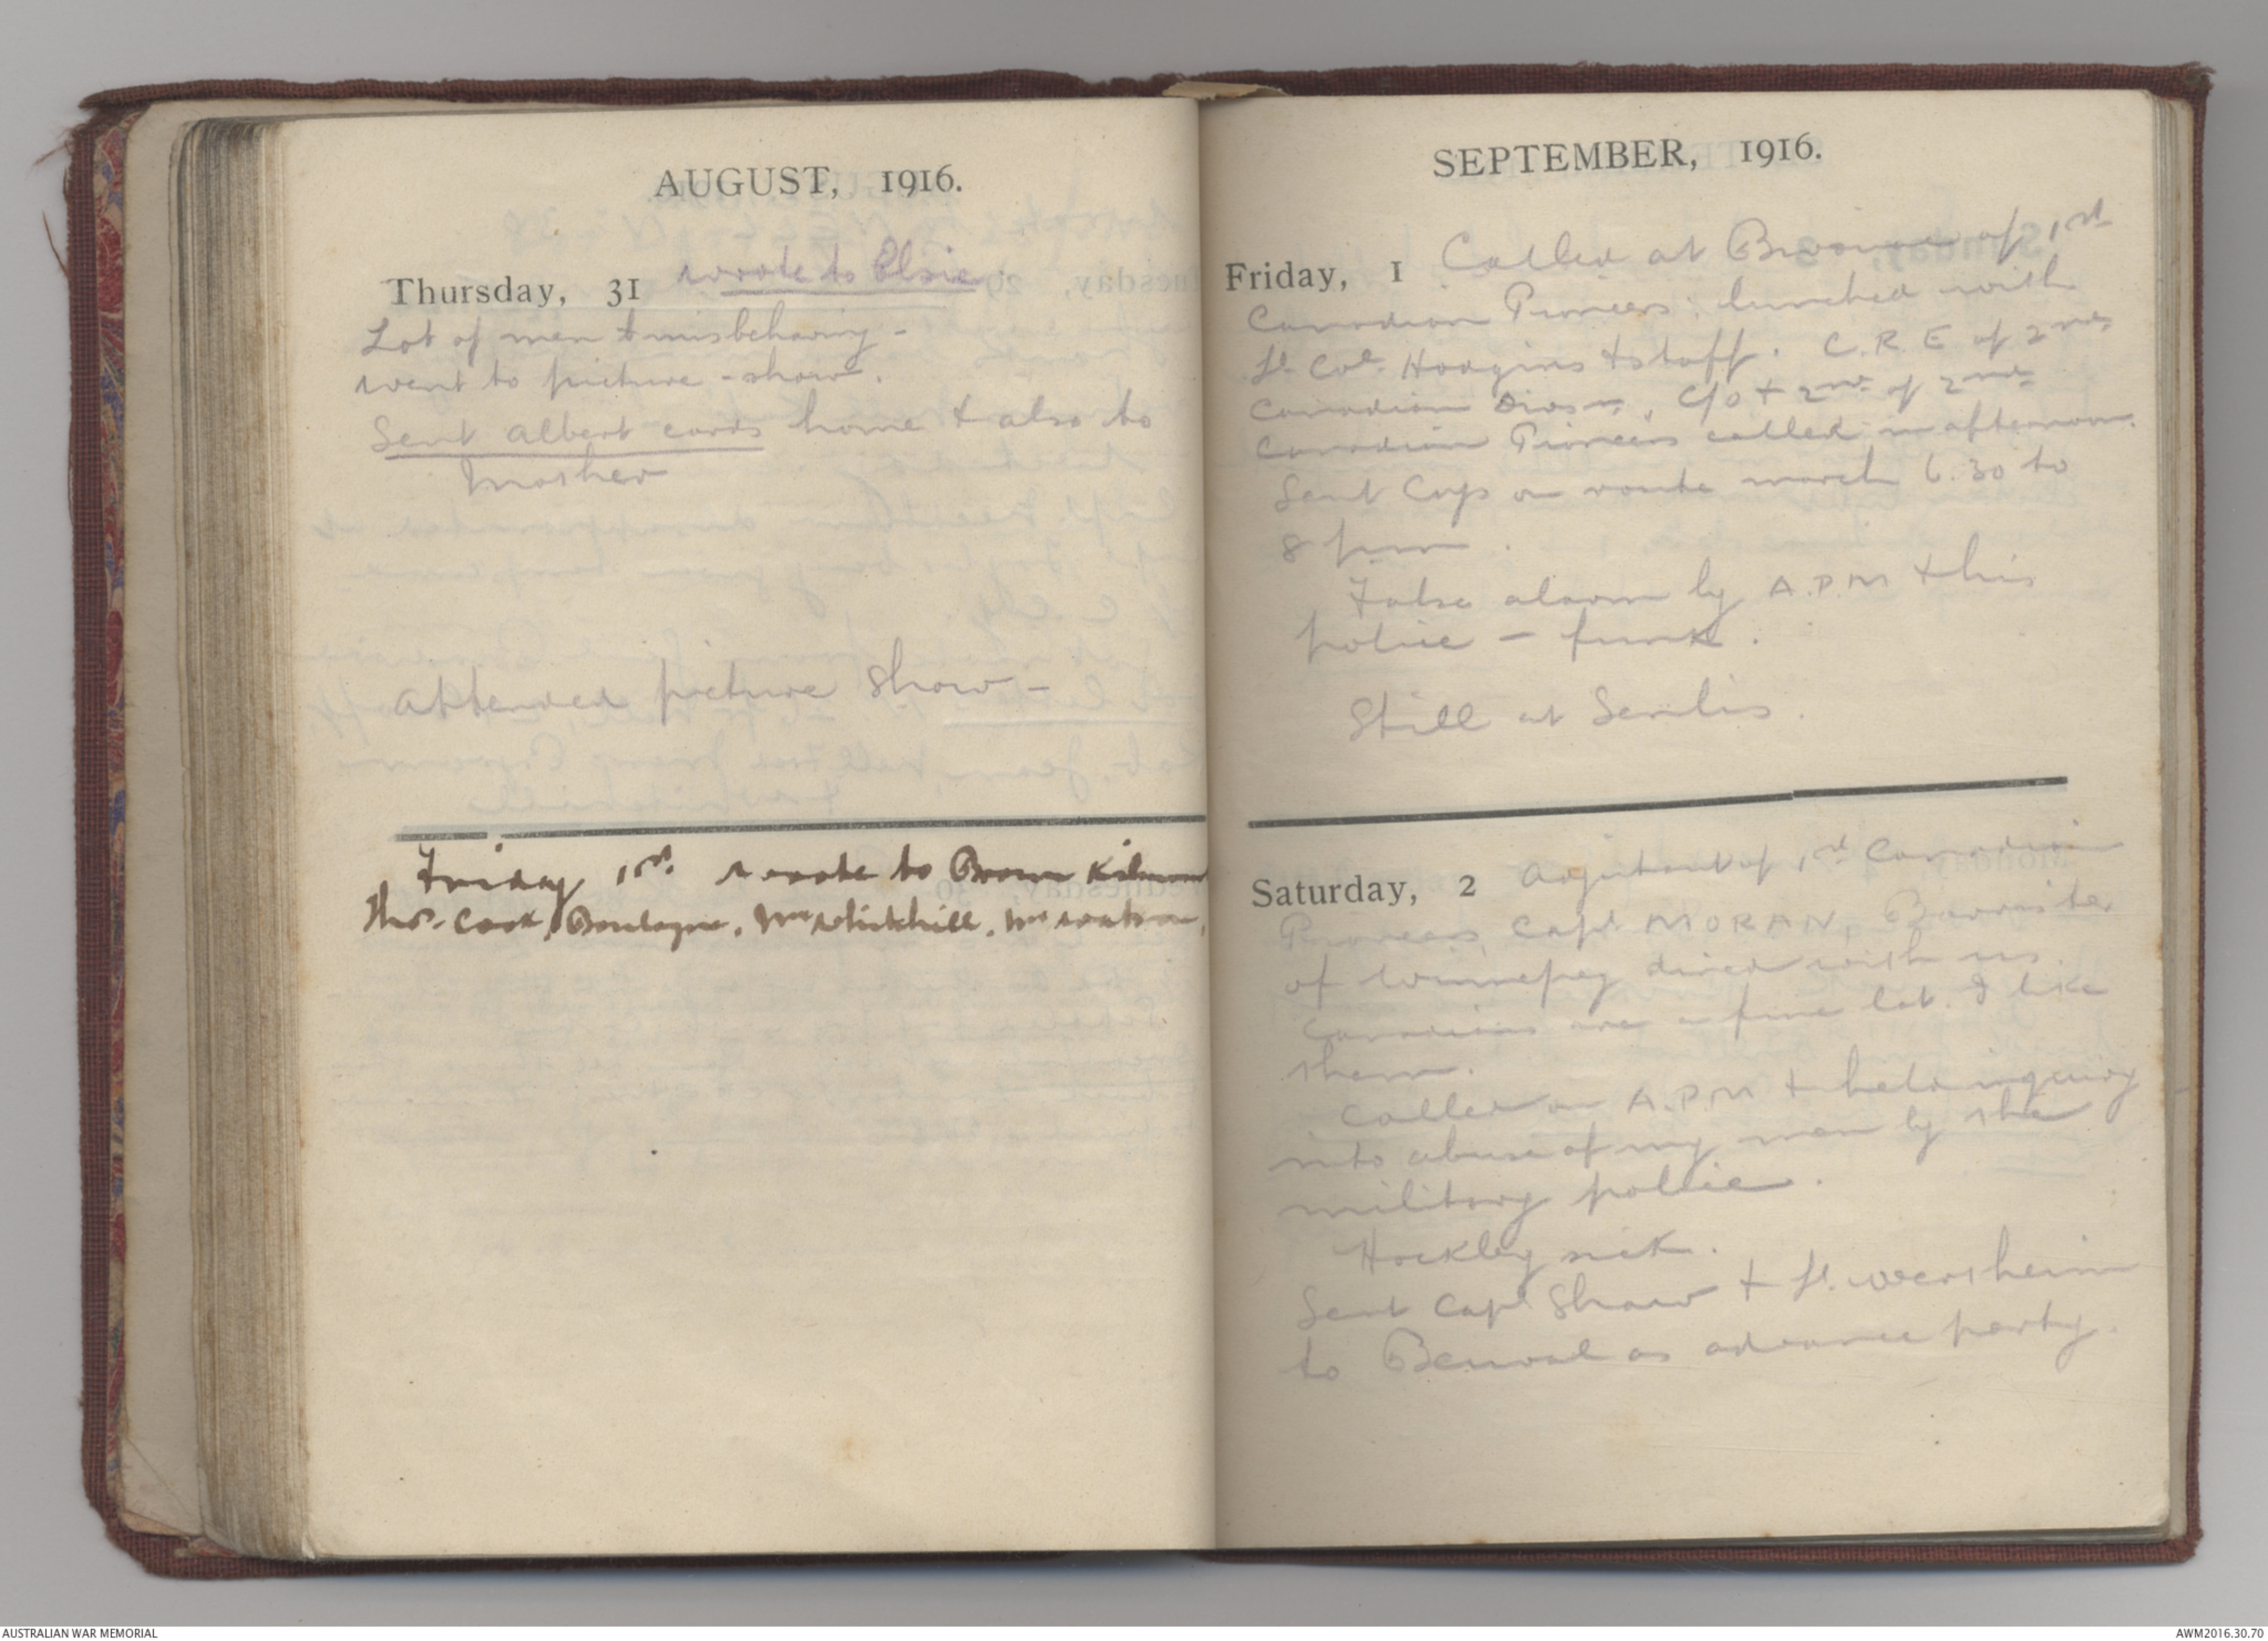 AUGUST, 1916.
Thursday, 31 wrote to Elsie
Lot of men misbehaving -
went to picture - show.
Sent Albert cards home & also to
Mosher
Attended picture show -
Friday 1st. wrote to Brown
Thos. Cook, Boulogne, Mrs Whitehill, Mrs Watson,
SEPTEMBER, 1916.
Friday, 1 Called at Bivouac of 1st
Canadian Pioneers; lunched with
Lt Col. Hodgins & staff. C.R.E of 2nd
Canadian Divsn, C/O & 2nd of 2nd
Canadian Pioneers called in afternoon.
Sent Coys on route march 6.30 to
8 pm.
False alarm by A.P.M & his
police - funk.
Still at Senlis.
Saturday, 2 Adjutant of 1st Canadian
Pioneers, Capt MORAN, Barrister
of Winnepeg dined with us.
Canadians are a fine lot. I like
them.
Called on A.P.M & held inquiry
into abuse of my men by the
military police.
Hockley sick.
Sent Capt Shaw & Lt. Wertheim
to Beauval as advance party.
AUSTRALIAN WAR MEMORIAL
AWM2016.30.70